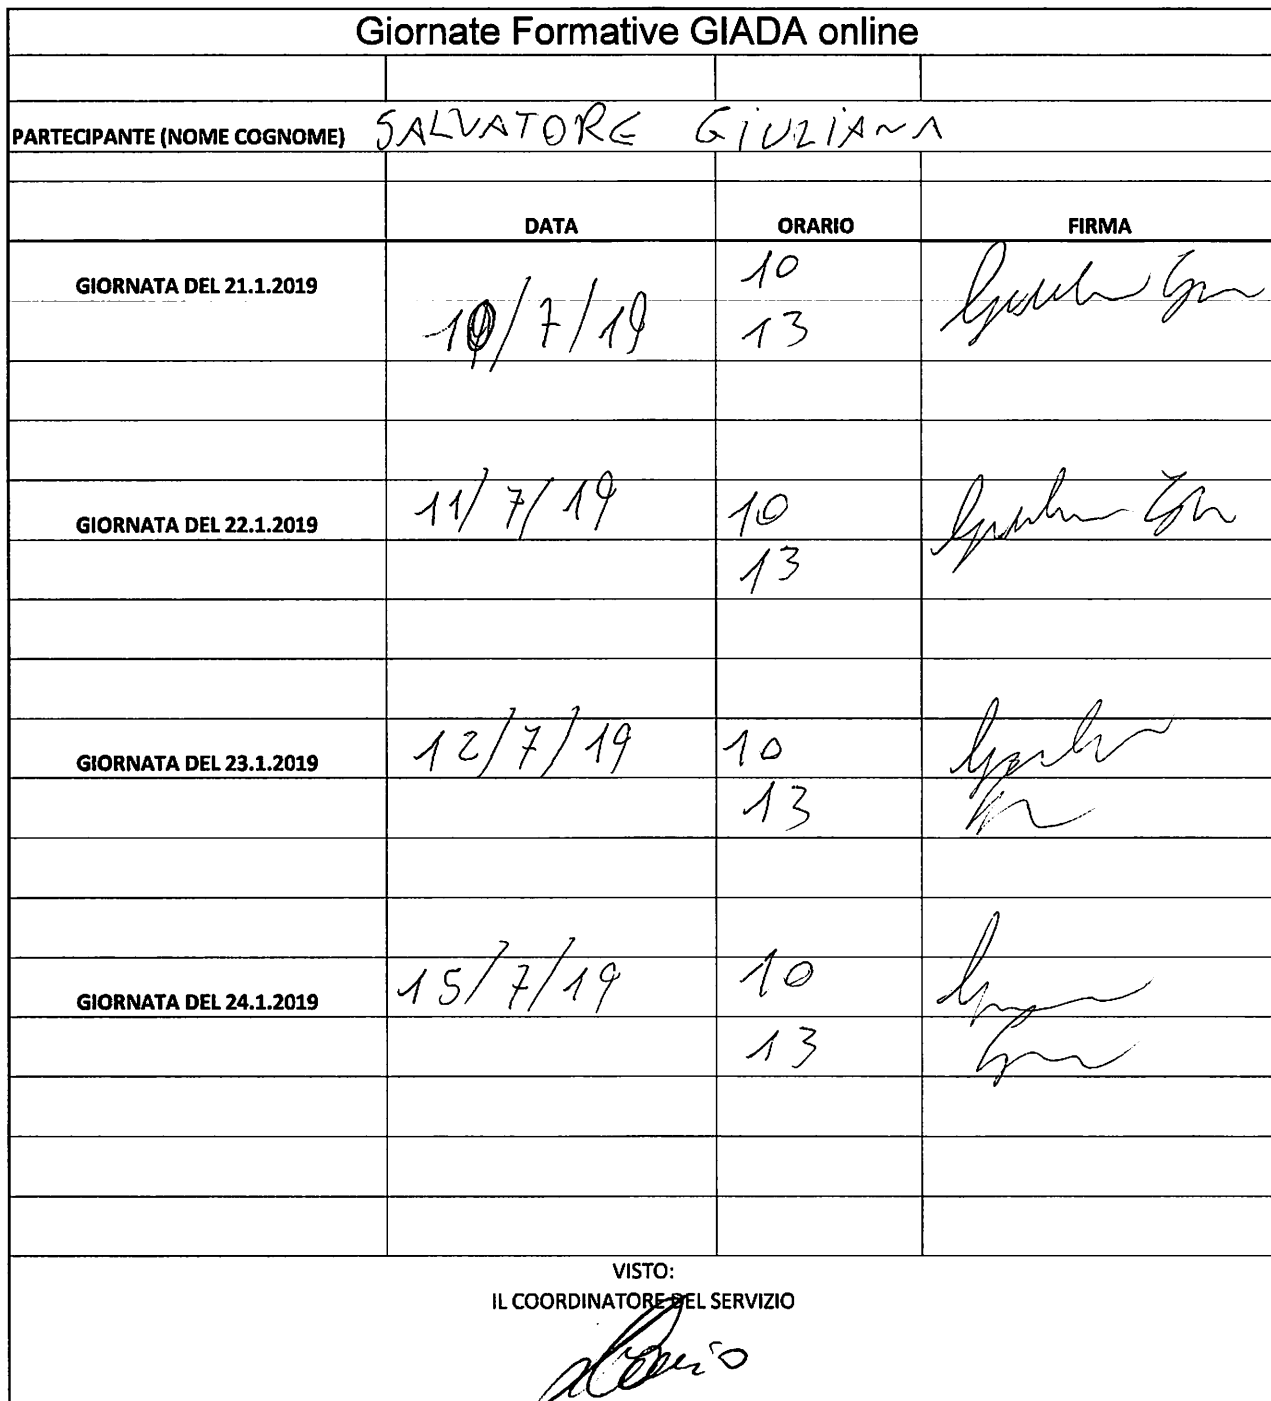 Giornate Formative GIADA online
PARTECIPANTE (NOME COGNOME) SALVATORE GIULIANA
DATA ORARIO FIRMA
10
GIORNATA DEL 21.1.2019
10/7/19 13
GIORNATA DEL 22.1.2019 11/7/19 10
13
GIORNATA DEL 23.1.2019 12/7/19 10
13
GIORNATA DEL 24.1.2019 15/7/19 10
13
VISTO:
IL COORDINATORE DEL SERVIZIO